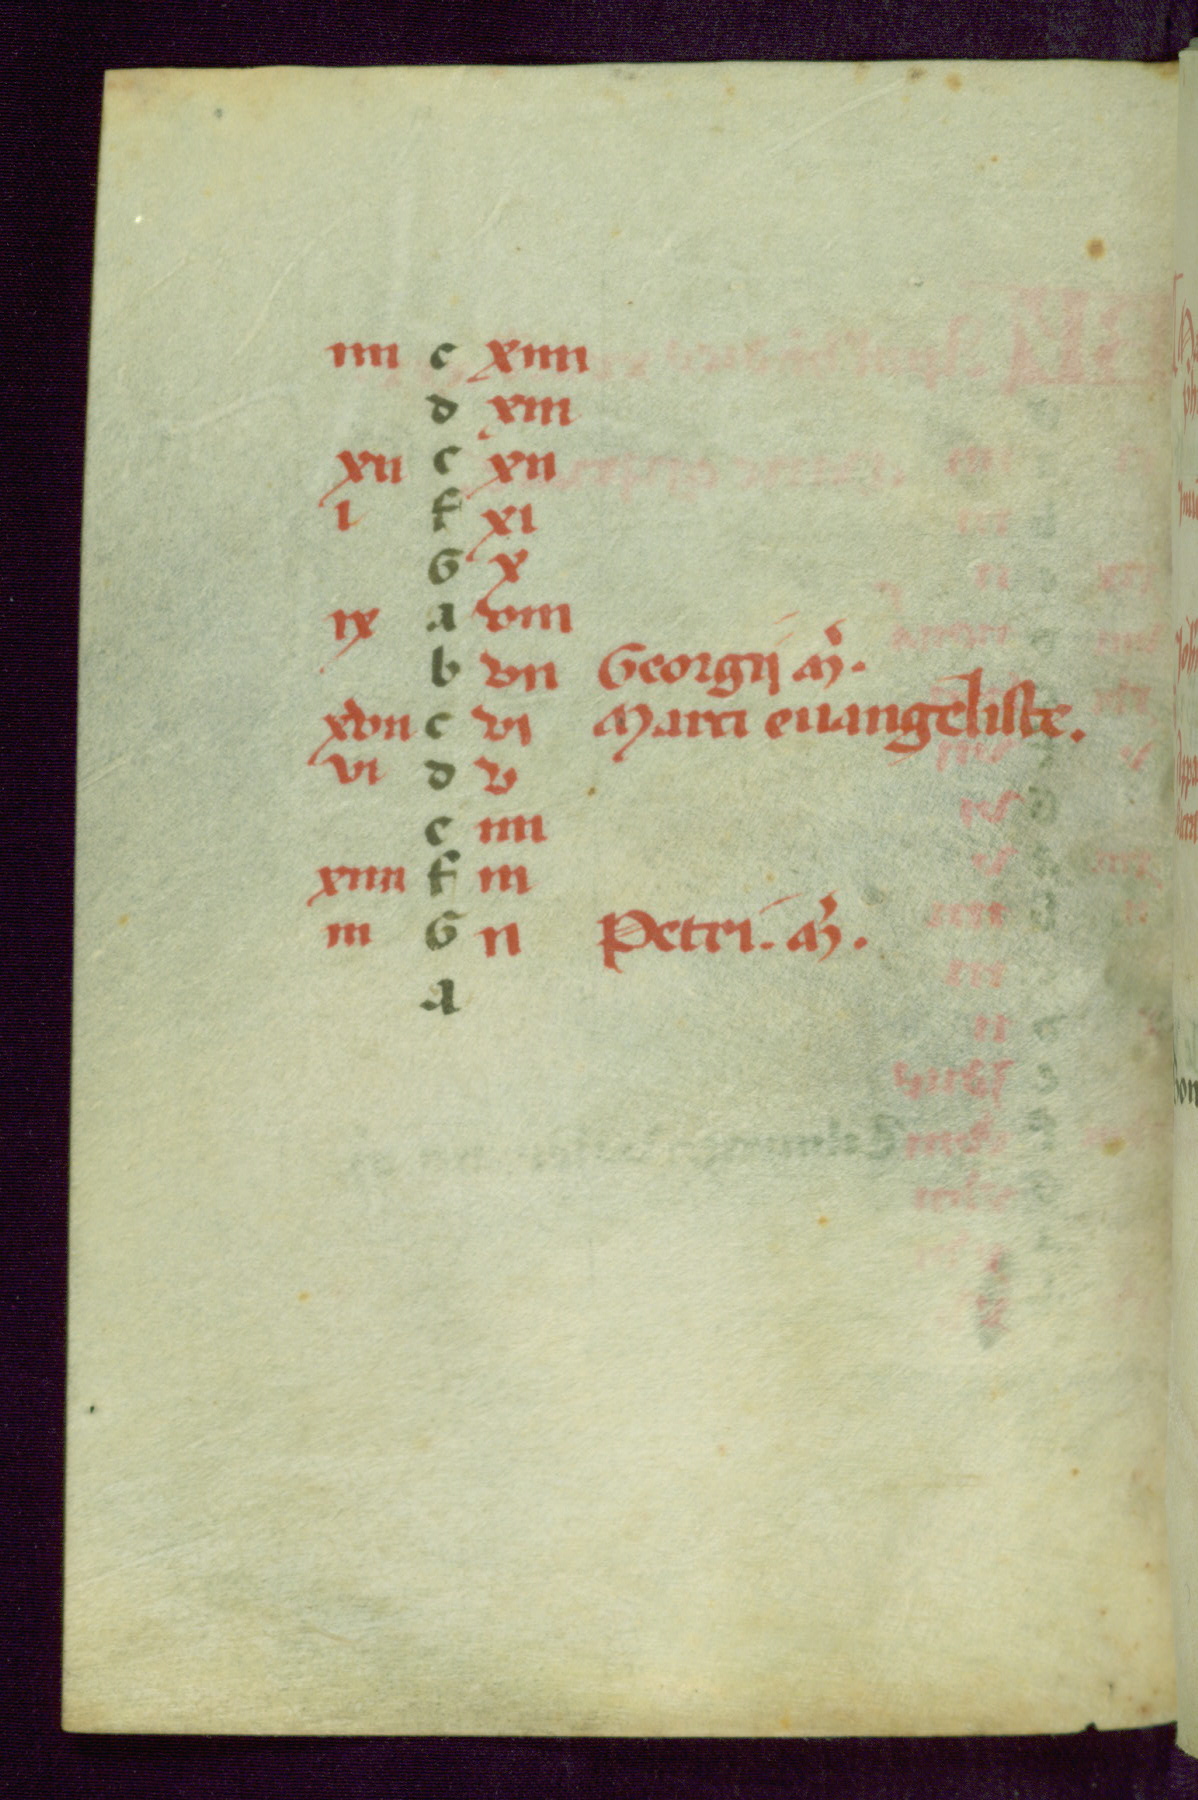 iiii c xiiii
d xiii
xii e xii
i f xi
G x
ix a viii
b vii Georgij m̄.
xvii c vi Marci euangeliste.
vi d v
e iiii
xiiii f iii
iii G ii Petri. m̄.
a